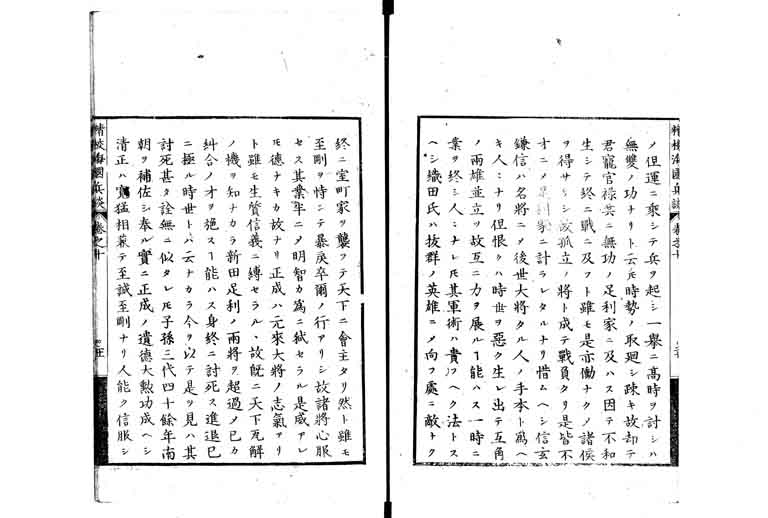 ノ但運ニ乘シテ兵ヲ起シ一擧ニ高時ヲ討シハ
無雙ノ功ナリト云𪜈時勢ノ取廻シ疎キ故却テ
君寵官祿共ニ無功ノ足利家ニ及ハス因テ不和
生シテ終ニ戰ニ及フト雖モ是亦働ナクメ諸侯
ヲ得サルシ故孤立ノ將ト成テ戰負タリ是皆不
才ニメ足利家ニ計ラレタルナリ惜ムヘシ信玄
鎌信ハ名將ニメ後世大將タル人ノ手本ト爲ヘ
キ人ニナリ但恨クハ時世ヲ惡ク生レ出テ互角
ノ兩雄並立ツ故互ニ力ヲ展ルヿ能ハス一時ニ
業ヲ終シ人ニナレ𪜈其軍術ハ貴フヘク法トス
ヘシ織田氏ハ拔群ノ英雄ニメ向フ處ニ敵ナク
終ニ室町家ヲ襲フテ天下ニ會主タリ然ト雖モ
至剛ヲ恃シテ暴戾卒爾ノ行アリシ故諸將心服
セス其業半ニメ明智カ爲ニ弑セラル是威アレ
𪜈德ナキカ故ナリ正成ハ元來大將ノ志氣アリ
ト雖モ生質信義ニ縛セラルヽ故既ニ天下瓦解
ノ機ヲ知ナカラ新田足利ノ兩將ヲ超過メ己カ
糾合ノ才ヲ施スヿ能ハス身終ニ討死ス進退巳
ニ極ル時世トハ云ナカラ今ヲ以テ是ヲ見ハ其
討死甚タ詮無ニ似タレ𪜈子孫三代四十餘年南
朝ヲ補佐シ奉ル實ニ正成ノ遺德大勲功成ヘシ
清正ハ寬猛相兼テ至誠至剛ナリ人能ク信服シ
精校海國兵談 卷之十